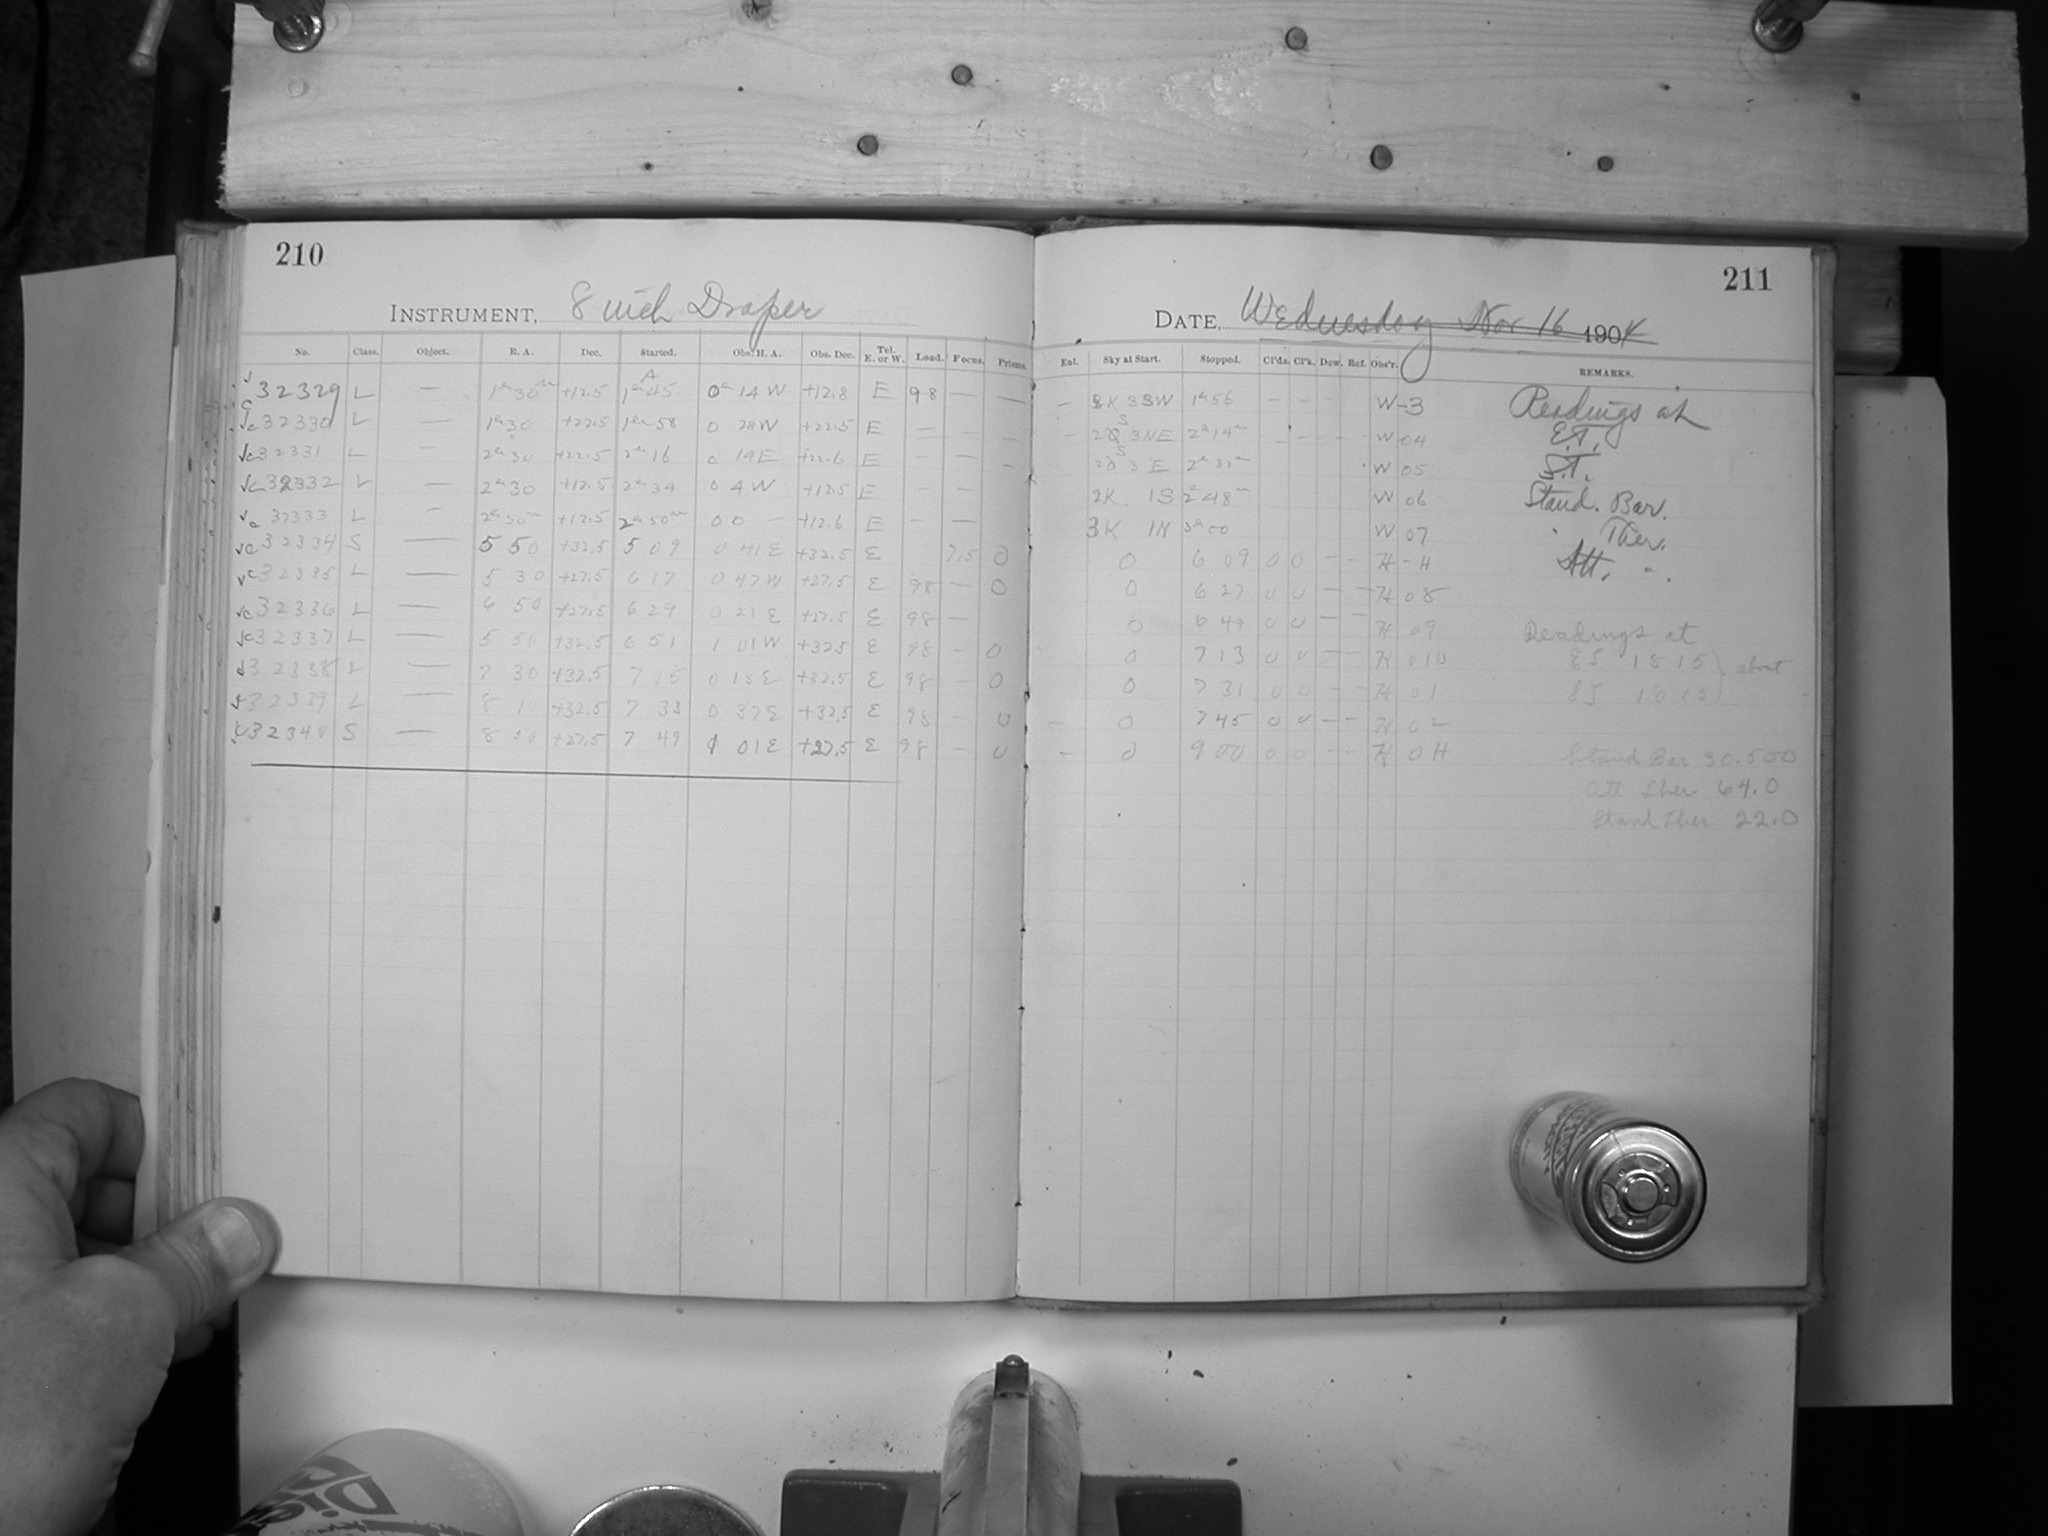 210
INSTRUMENT, 8 inch Draper
No. Class. Object. R. A. Dec. Started. Obs. H. A. Obs. Dec. Tel. E. or W. Load. Focus. Prisms.
32329 L — 1h 30m +12.5 1h 45 0h 14 W +12.8 E 98 — —
32330 L — 1h 30 +22.5 1h 58 0 28 W +22.5 E — — —
32331 L — 2h 30 +22.5 2h 16 0 14 E +22.6 E — — —
32332 L — 2h 30 +12.5 2h 34 0 4 W +12.5 E — —
32333 L — 2h 50m +12.5 2h 50m 0 0 — +12.6 E — —
32334 S — 5 50 +32.5 5 09 0 41 E +32.5 E 7.5 0
32335 L — 5 30 +27.5 6 17 0 47 W +27.5 E 98 — 0
32336 L — 6 50 +27.5 6 29 0 21 E +27.5 E 98 —
32337 L — 5 50 +32.5 6 51 1 01 W +32.5 E 98 — 0
32338 L — 7 30 +32.5 7 15 0 15 E +32.5 E 98 — 0
32339 L — 8 10 +32.5 7 33 0 37 E +32.5 E 98 — 0
32340 S — 8 50 +27.5 7 49 1 01 E +27.5 E 98 — 0
211
DATE, Wednesday Nov 16 1904
Ext. Sky at Start. Stopped. Cl'ds. Cl'k. Dew. Ref. Obs'r. REMARKS.
— 3 S W 1h 56 — — — W -3 Readings at
— 3 NE 2h 14m — — — — W 04 E.T.
3 E W 05 S.T.
2K. 1S 2h 48m W 06 Stand. Bar.
3K 1N 3h 00 W 07 " Ther.
0 6 09 0 0 — — H - H Att. "
0 6 27 0 0 — — H 08
0 6 49 0 0 — — H 09 Readings at
0 7 13 0 0 — — H 010 18 15 } about
0 7 31 0 0 — — H 01 18 15
— 0 7 45 0 0 — — H 02
— 0 9 00 0 0 — — H 0H Stand Bar 30.500
Att Ther 64.0
Stand Ther 22.0